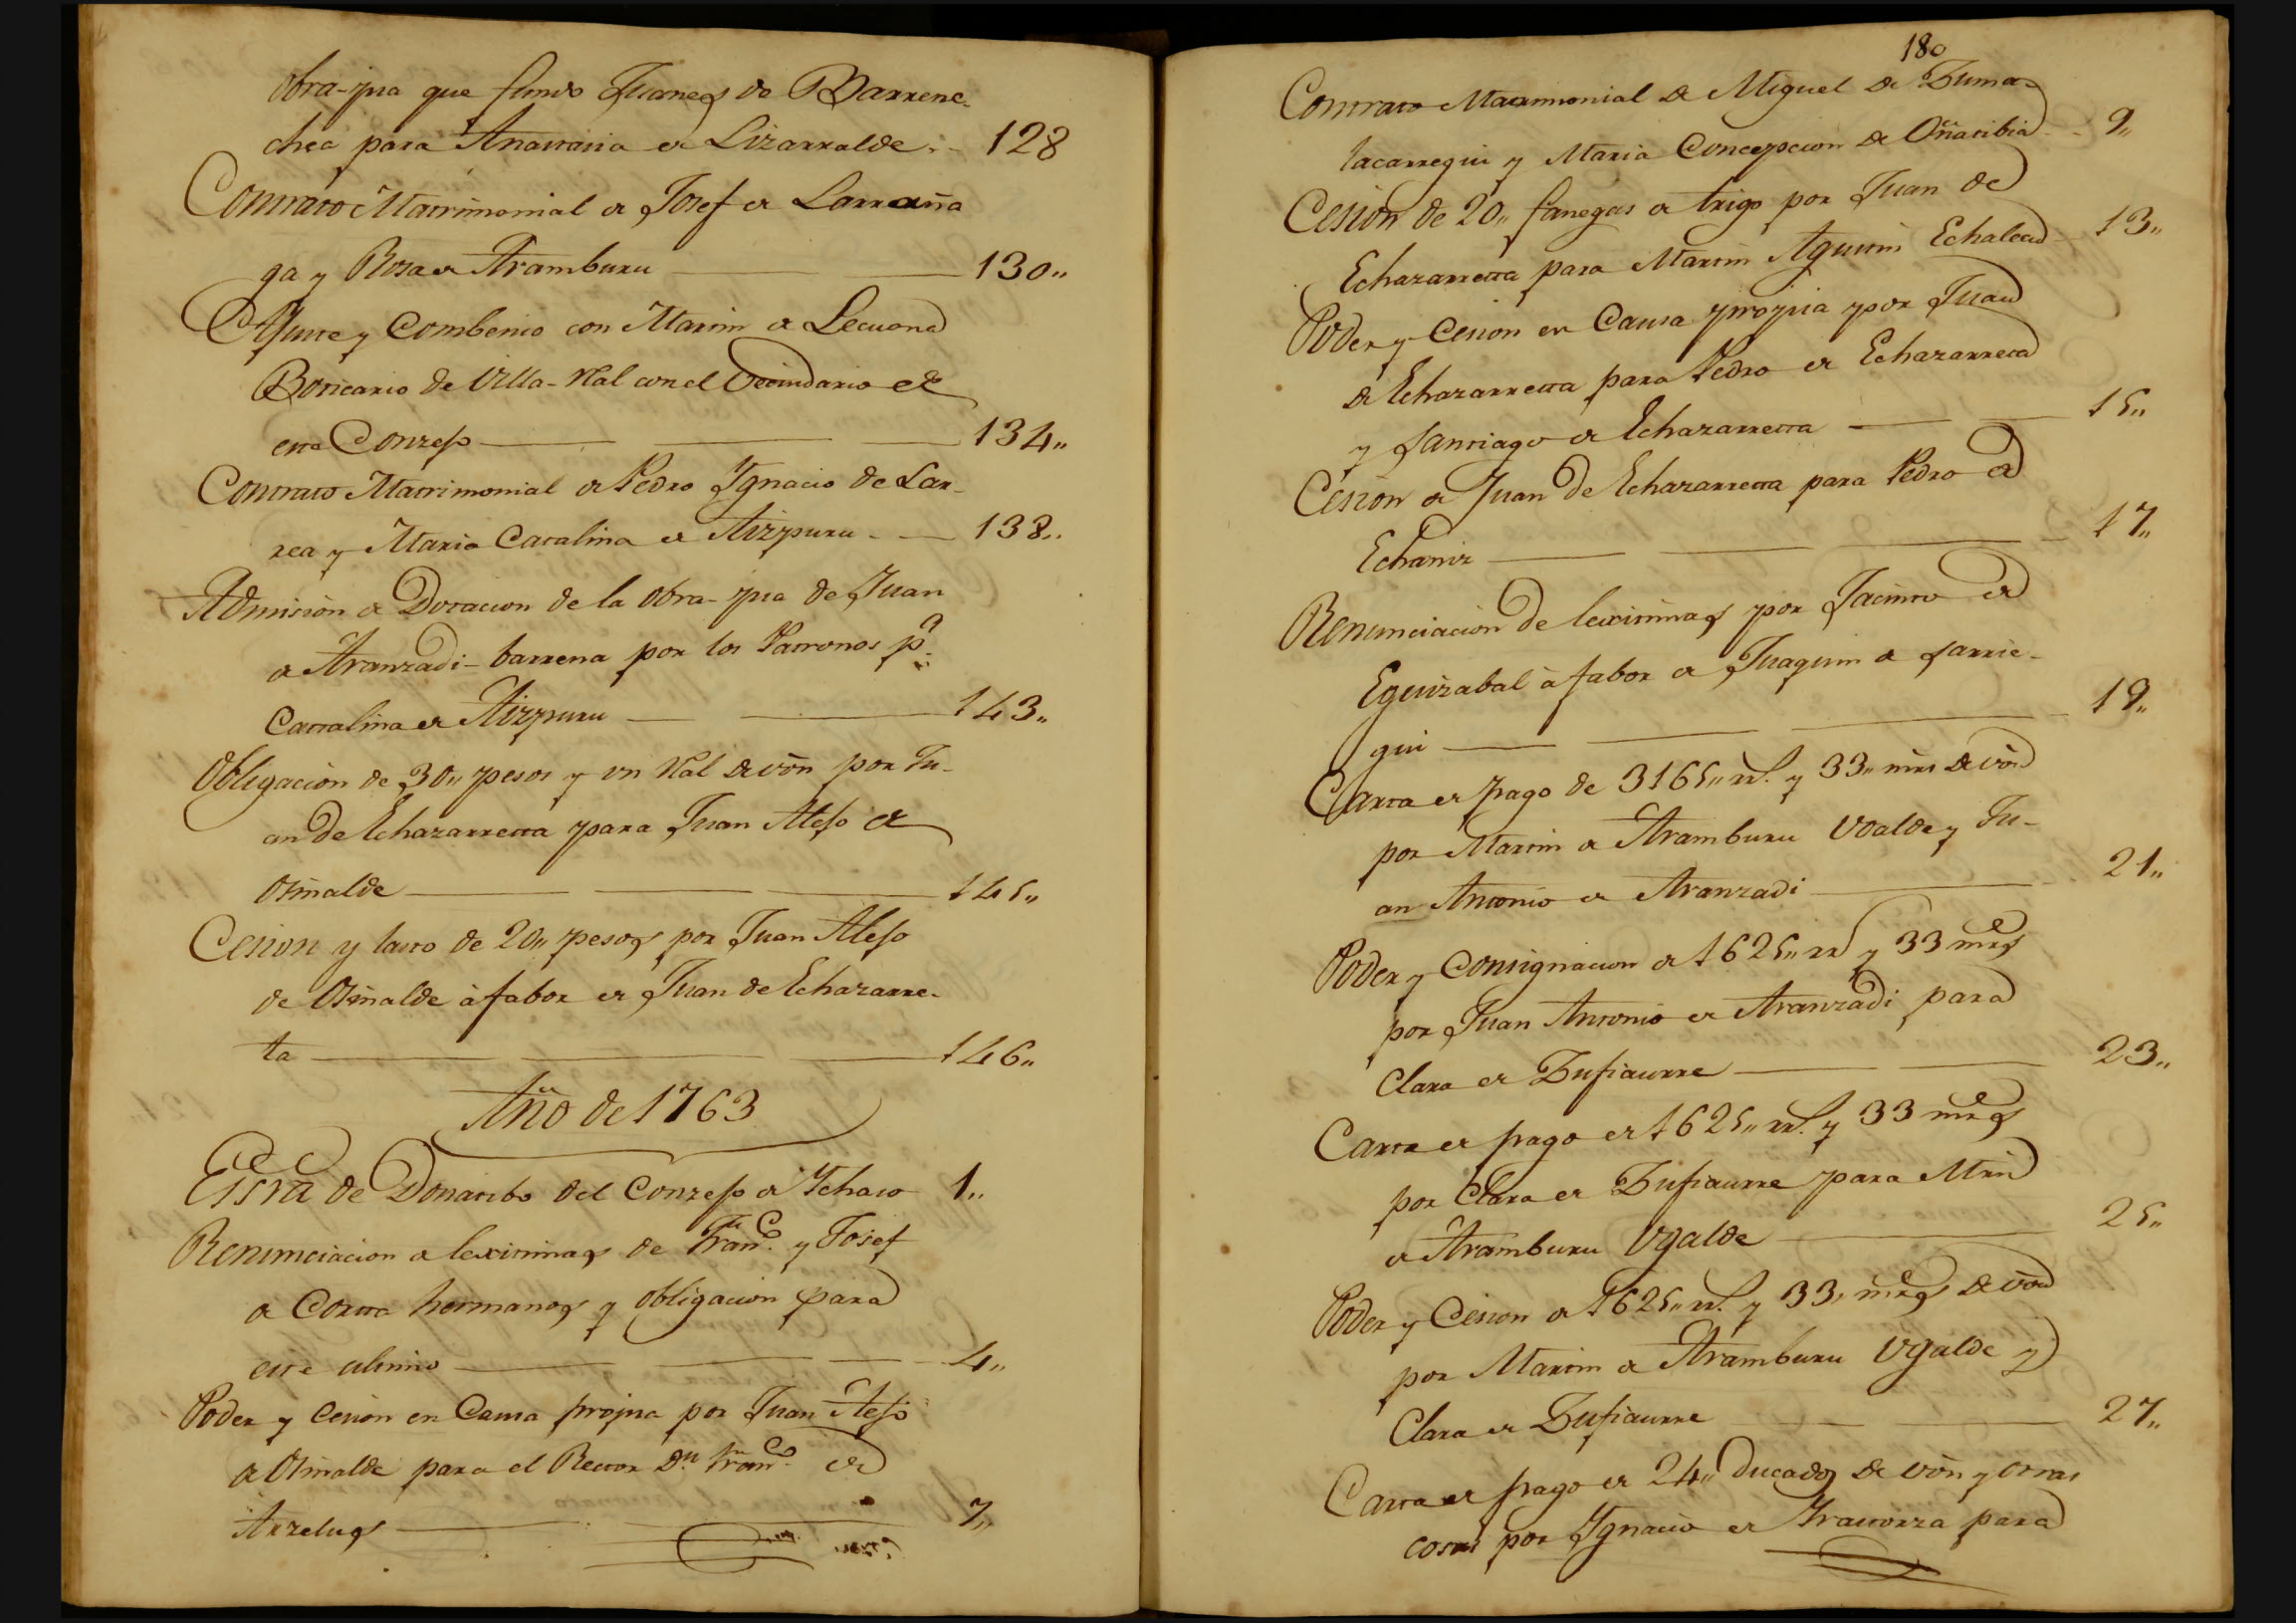 obra-pia que fundo Juanes de Barrene-
chea para Anamaria de Lizarralde. - 128
Contrato Matrimonial de Josef de Larraña
ga y Rosa de Aramburu 130,,
Ajuste y Combenio con Martin de Lecuona
Boticario de Villa-Rral con el Vecindario de
este Conzejo 134,,
Contrato Matrimonial de Pedro Ignacio de Lar-
rea y Maria Catalina de Aizpuru - 138,,
Admision de Dotacion de la obra-pia de Juan
de Aranzadi-barrena por los Patronos pª
Cattalina de Aizpuru 143,,
Obligacion de 30,, pesos y vn Rral de von por Ju-
an de Echazarreta para Juan Alejo de
Osinalde 145,,
Cesion y lasto de 20,, pesos por Juan Alejo
de Osinalde à fabor de Juan de Echazarre-
ta 146,,
Año de 1763
Essra de Donatibo del Conzejo de Ichaso 1,,
Renunciacion de lexitimas de Franco. y Josef
de Corta hermanos y obligacion para
este ultimo 4,,
Poder y cesion en Causa propia por Juan Alejo
de Osinalde para el Rector Dn. Franco. de
Arzelus 7,,
180
Contrato Matrimonial de Miguel de Zuma-
lacarregui y Maria Concepcion de Oñatibia 9,,
Cesion de 20,, fanegas de trigo por Juan de
Echazarreta para Martin Agustin Echalecu 13,,
Poder y Cesion en Causa propia por Juan
de Echazarreta para Pedro de Echazarreta
y Santiago de Echazarreta 15,,
Cesion de Juan de Echazarreta para Pedro de
Echaniz 17,,
Renunciacion de lexitimas por Jacinto de
Eguizabal à fabor de Juaquin de Sarrie-
gui 19,,
Carta de pago de 3165,, rrs. y 33,, mrs de von
por Martin de Aramburu Vgalde y Ju-
an Antonio de Aranzadi 21,,
Poder y Consignacion de 1625,, rrs y 33 mrs
por Juan Antonio de Aranzadi para
Clara de Zufiaurre 23,,
Carta de pago de 1625,, rrs. y 33 mrs
por Clara de Zufiaurre para Mrn
de Aramburu Vgalde 25,,
Poder y Cesion de 1625,, rrs. y 33,, mrs de von
por Martin de Aramburu Vgalde y
Clara de Zufiaurre 27,,
Carta de pago de 24,, Ducados de von y otras
cosas por Ygnacio de Yraztorza para